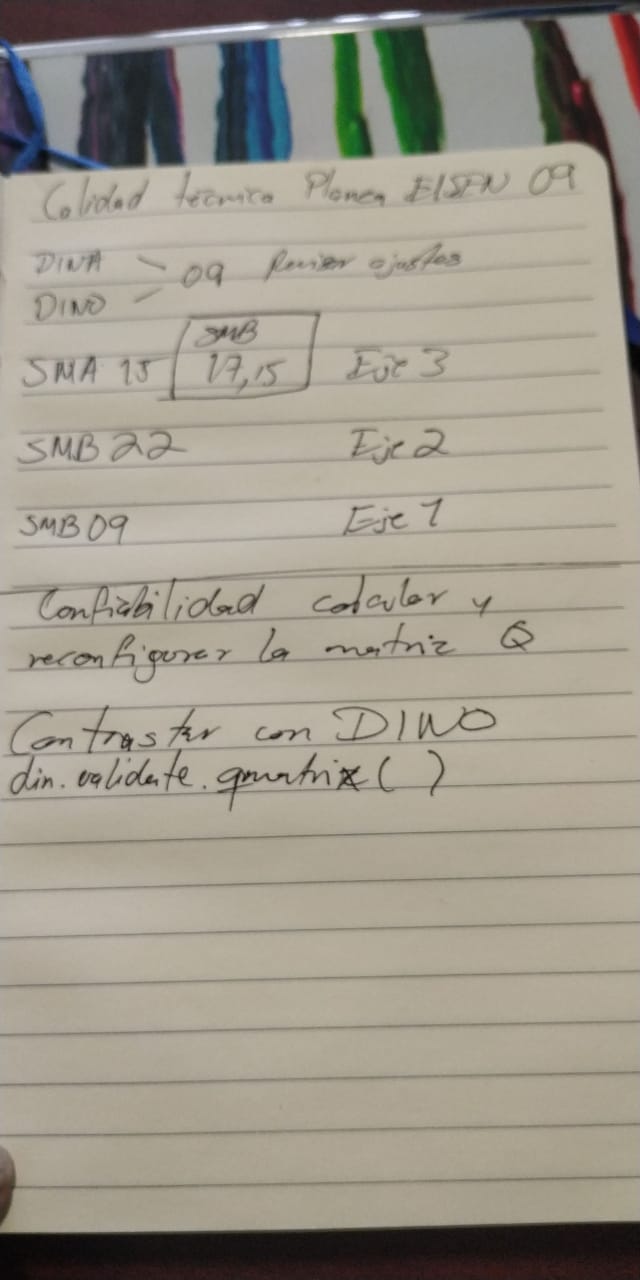 Calidad técnica Planea EISEN 09
DINA
DINO
09 Revisar ajustes
SMB
SMA 15 17,15 Eje 3
SMB 22 Eje 2
SMB 09 Eje 1
Confiabilidad calcular y
reconfigurar la matriz Q
Contrastar con DINO
din.validate.qmatrix( )